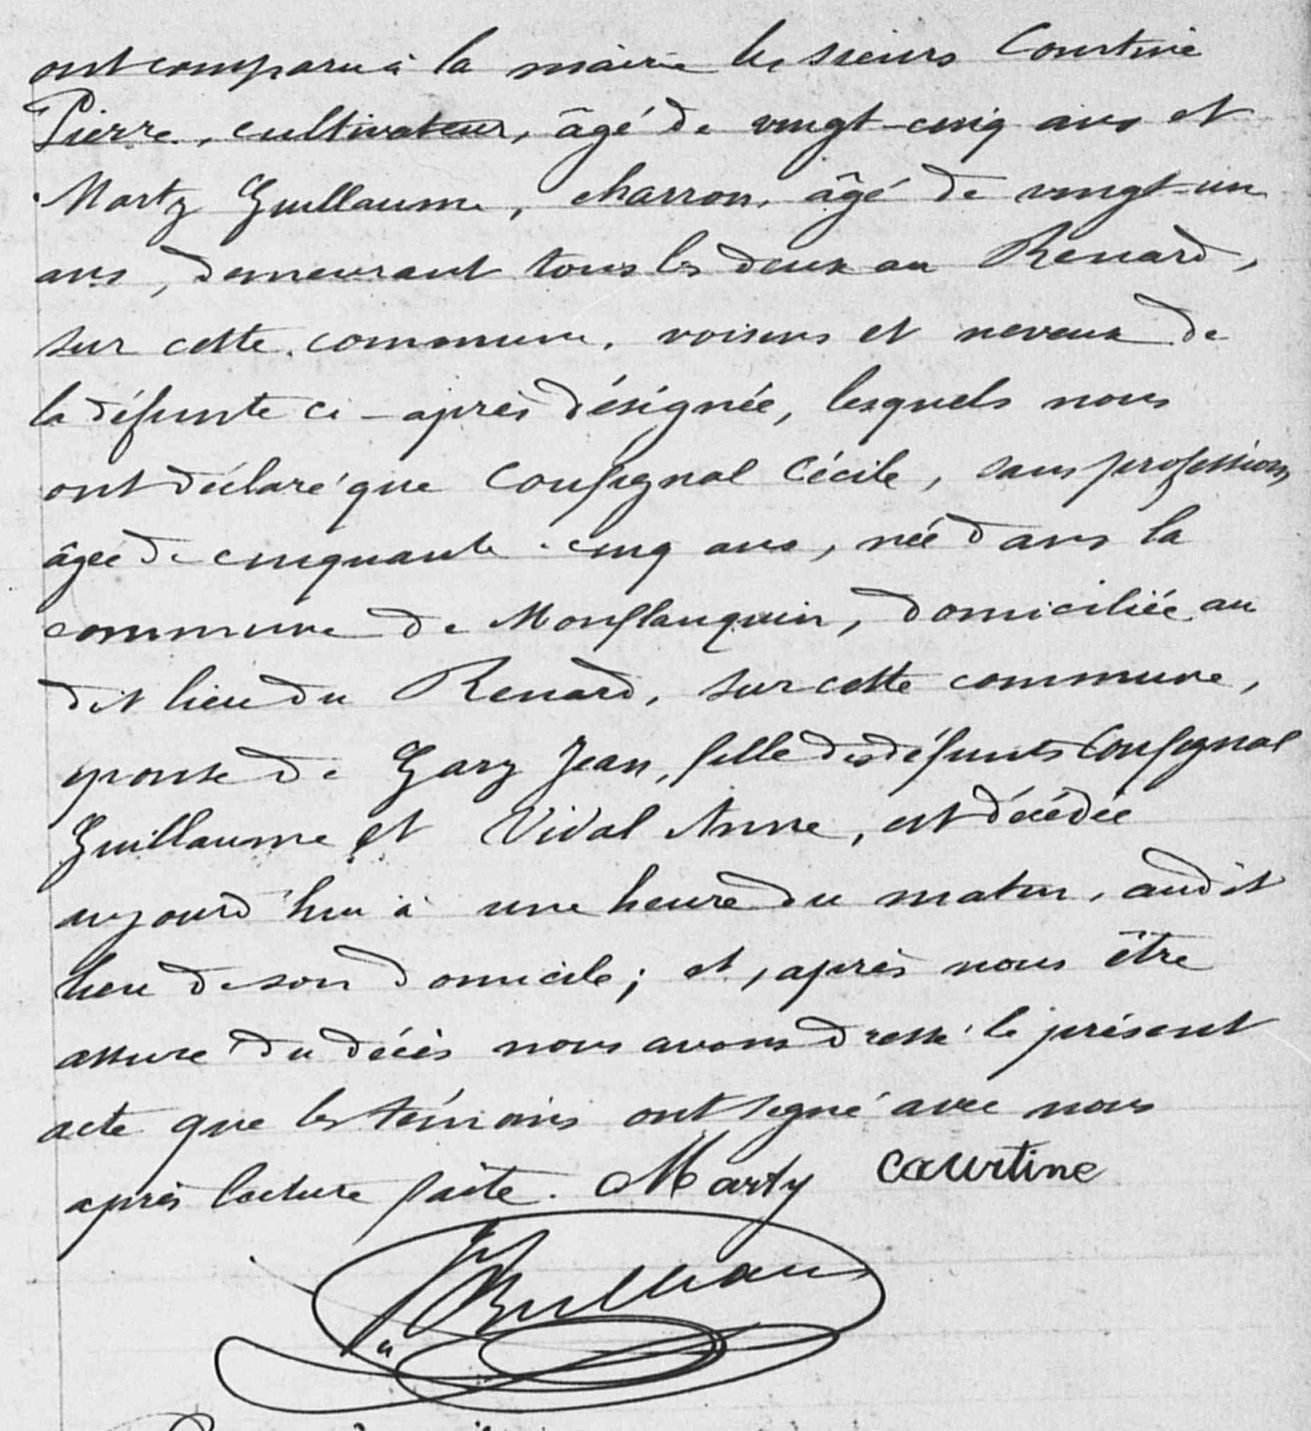 ont comparu à la mairie les sieurs Courtine
Pierre, cultivateur, âgé de vingt-cinq ans et
Marty Guillaume, charron, âgé de vingt-un
ans, demeurant tous les deux au Renard,
sur cette commune, voisins et neveux de
la défunte ci-après désignée, lesquels nous
ont déclaré que Coufignal Cécile, sans profession
âgée de cinquante-cinq ans, née dans la
commune de Monflanquin, domiciliée au
dit lieu du Renard, sur cette commune,
épouse de Gary Jean, fille des défunts Coufignal
Guillaume et Vidal Anne, est décédée
aujourd'hui à une heure du matin, audit
lieu de son domicile; et, après nous être
assuré du décès nous avons dressé le présent
acte que les témoins ont signé avec nous
après lecture faite. Marty Courtine